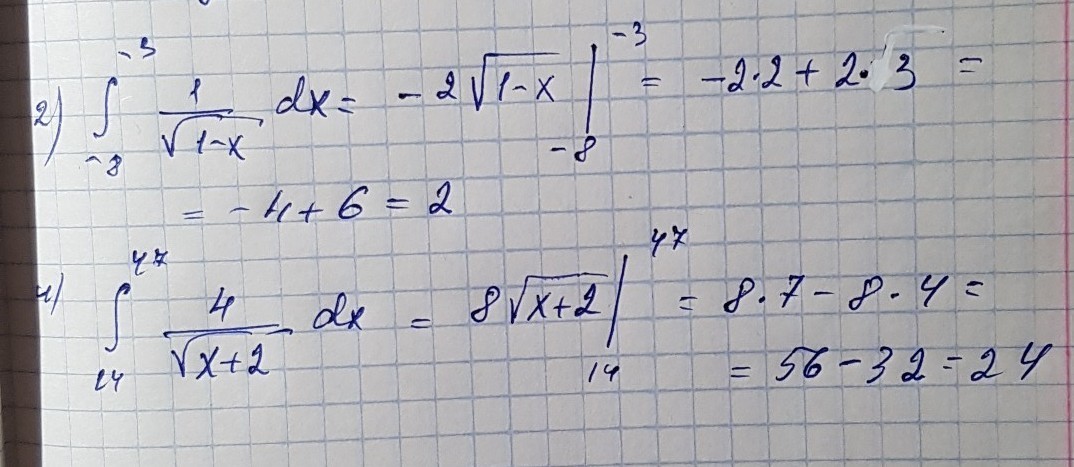 2) ∫_{-8}^{-3} 1/√(1-x) dx = -2√(1-x) |_{-8}^{-3} = -2·2 + 2·3 =
= -4 + 6 = 2
4) ∫_{14}^{47} 4/√(x+2) dx = 8√(x+2) |_{14}^{47} = 8·7 - 8·4 =
= 56 - 32 = 24